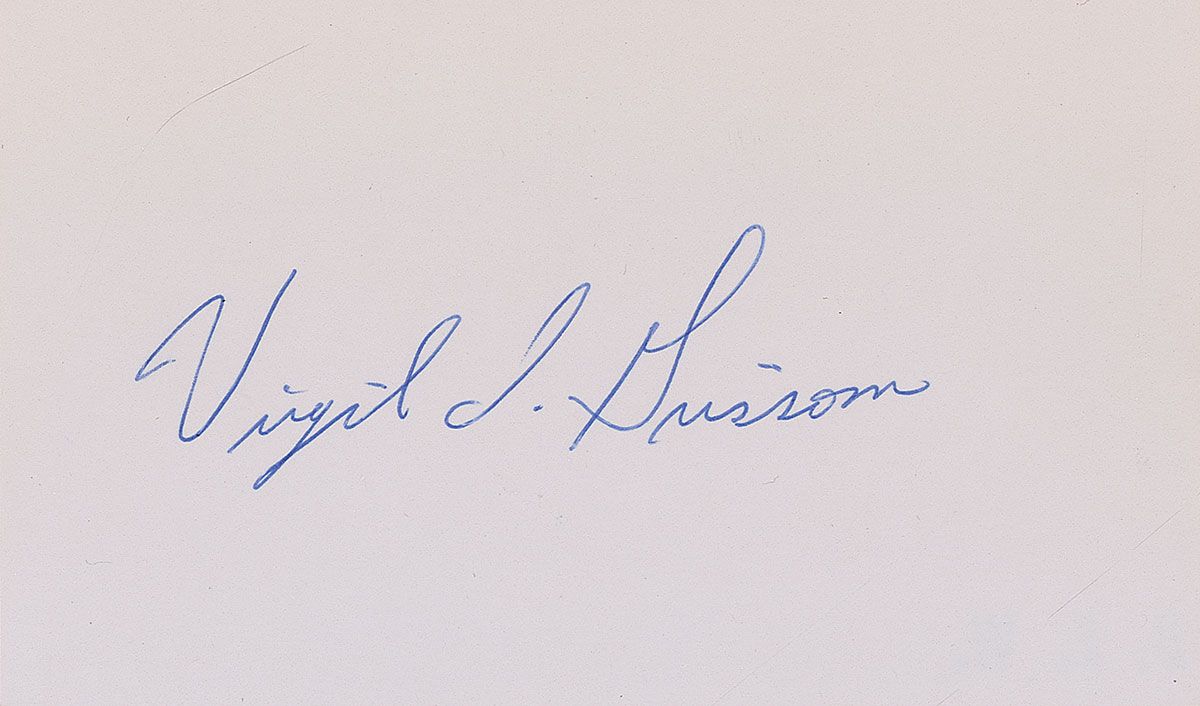 Virgil I. Grissom